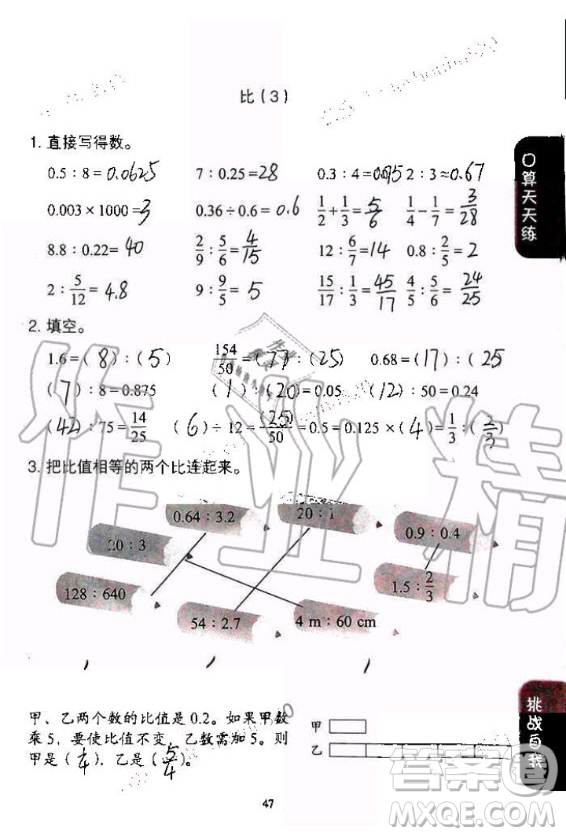 比（3）
1. 直接写得数。
0.5：8＝0.0625 7：0.25＝28 0.3：4＝0.075 2：3＝0.67
0.003×1000＝3 0.36÷0.6＝0.6 1/2＋1/3＝5/6 1/4－1/7＝3/28
8.8：0.22＝40 2/9：5/6＝4/15 12：6/7＝14 0.8：2/5＝2
2：5/12＝4.8 9：9/5＝5 15/17：1/3＝45/17 4/5：5/6＝24/25
2. 填空。
1.6＝（8）：（5） 154/50＝（77）：（25） 0.68＝（17）：（25）
（7）：8＝0.875 （1）：（20）＝0.05 （12）：50＝0.24
（42）：75＝14/25 （6）÷12＝（25）/50＝0.5＝0.125×（4）＝1/3：（2/3）
3. 把比值相等的两个比连起来。
0.64：3.2 20：1
20：3 0.9：0.4
128：640 1.5：2/3
54：2.7 4 m：60 cm
甲、乙两个数的比值是0.2。如果甲数
乘5，要使比值不变，乙数需加5。则
甲是（1/4），乙是（5/4）。
甲
乙
47
口算天天练
挑战自我
作业精
答案圈
MXQE.COM